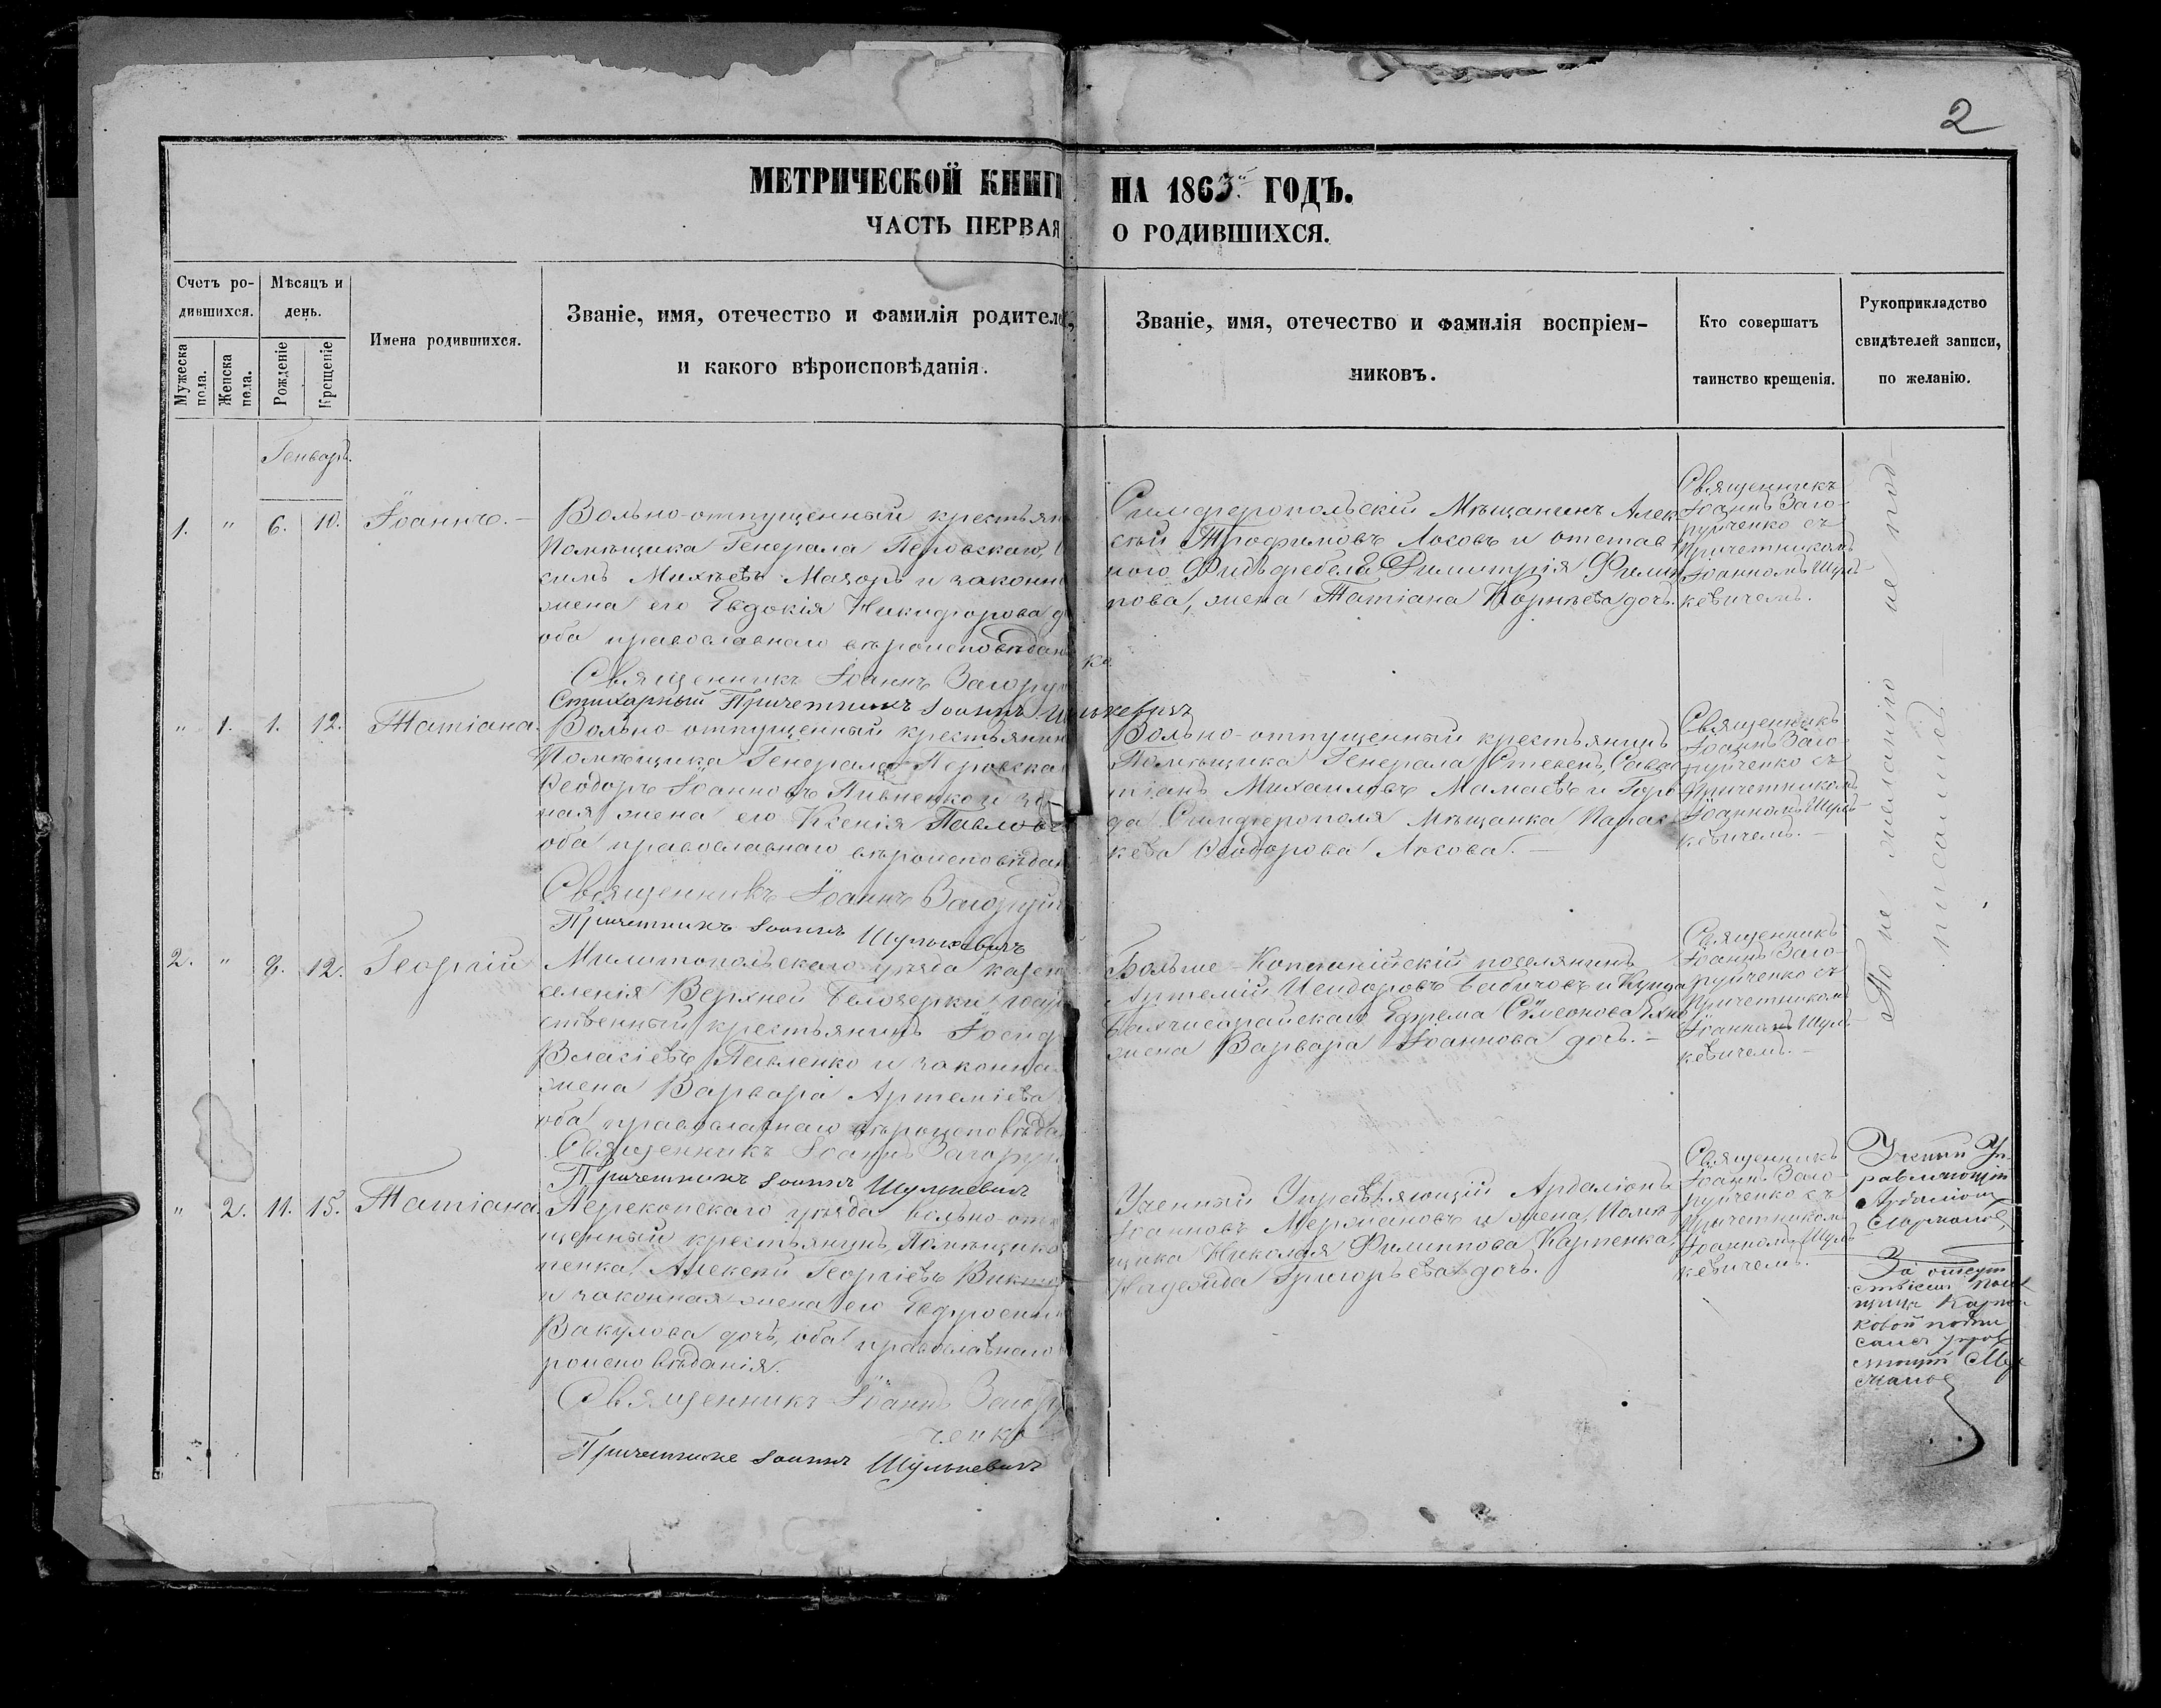 2
МЕТРИЧЕСКОЙ КНИГИ НА 1863й ГОДЪ.
ЧАСТЬ ПЕРВАЯ О РОДИВШИХСЯ.
Счетъ ро-
дившихся.
Мужеска пола.
Женска пола.
Мѣсяцъ и
день.
Рожденіе
Крещеніе
Имена родившихся.
Званіе, имя, отечество и фамилія родителей,
и какого вѣроисповѣданія.
Званіе, имя, отечество и фамилія воспріем-
никовъ.
Кто совершатъ
таинство крещенія.
Рукоприкладство
свидѣтелей записи,
по желанію.
Генварь.
1. " 6. 10. Іоаннъ.
Вольно-отпущенный крестьян
Помѣщика Генерала Перовскаго,
симъ Михѣевъ Мазоръ и законн
жена его Евдокія Никифорова д
оба православнаго вѣроисповѣдан
Священникъ Іоаннъ Загоруй
Стихарный Причетникъ Іоаннъ Шулькевичъ
Симферопольскій Мѣщанинъ Алек-
сѣй Трофимовъ Лосовъ и отстав
ного Фидьфебеля Димитрія Филип
пова, жена Татіана Корнѣева дочь.
Священникъ
Іоаннъ Заго-
руйченко съ
Причетникомъ
Іоанномъ Шуль-
кевичемъ.
" 1. 1. 12. Татіана.
Вольно-отпущенный крестьянин
Помѣщика Генерала Перовска
Ѳеодоръ Іоанновъ Пивненко и за
ная жена его Ксенія Павлов
оба православнаго вѣроисповѣдан
Священникъ Іоаннъ Загоруй
Причетникъ Іоаннъ Шулькевичъ
Вольно-отпущенный крестьянинъ
Помѣщика Генерала Стевенъ, Савас
тіанъ Михаиловъ Мамаевъ и Горо
да Симферополя Мѣщанка Парас
кева Ѳеодорова Лосова.
Священникъ
Іоаннъ Заго-
руйченко съ
Причетникомъ
Іоанномъ Шуль-
кевичемъ.
2. " 8. 12. Георгій
Милитопольскаго уѣзда казен
селенія Верхней Белозерки госуд
ственный крестьянинъ Іосиф
Власіевъ Павленко и законна
жена Варвара Артеміева
оба православнаго вѣроисповѣда
Священникъ Іоаннъ Загоруй
Причетникъ Іоаннъ Шулькевичъ
Больше-Копанійскій поселянинъ
Артемій Исидоровъ Бабичовъ и Купца
Бахчисарайскаго Ефрема Сѵмеонова
жена Варвара Іоаннова дочь.
Священникъ
Іоаннъ Заго-
руйченко съ
Причетникомъ
Іоанномъ Шуль
кевичемъ.
По не желанію не под-
писались
" 2. 11. 15. Татіана
Перекопскаго уѣзда вольно-отп
щенный крестьянинъ Помѣщика
пенка Алексѣй Георгіевъ
и законная жена его Евфросин
Вакулова дочь, оба православнаго
роисповѣданія.
Священникъ Іоаннъ Загоруй
ченко
Причетникъ Іоаннъ Шулькевичъ
Ученный Управляющій Ардаліонъ
Іоанновъ Мержановъ и жена, Помѣ
щика Николая Филиппова Карпенка,
Надежда Григорьева дочь.
Священникъ
Іоаннъ Заго-
руйченко съ
Причетникомъ
Іоанномъ Шуль
кевичемъ.
Ученый Уп
равляющій
Ардаліонъ
За отсут
ствіемъ Помѣ
щицы Карпен
ковой подпи
сался управ